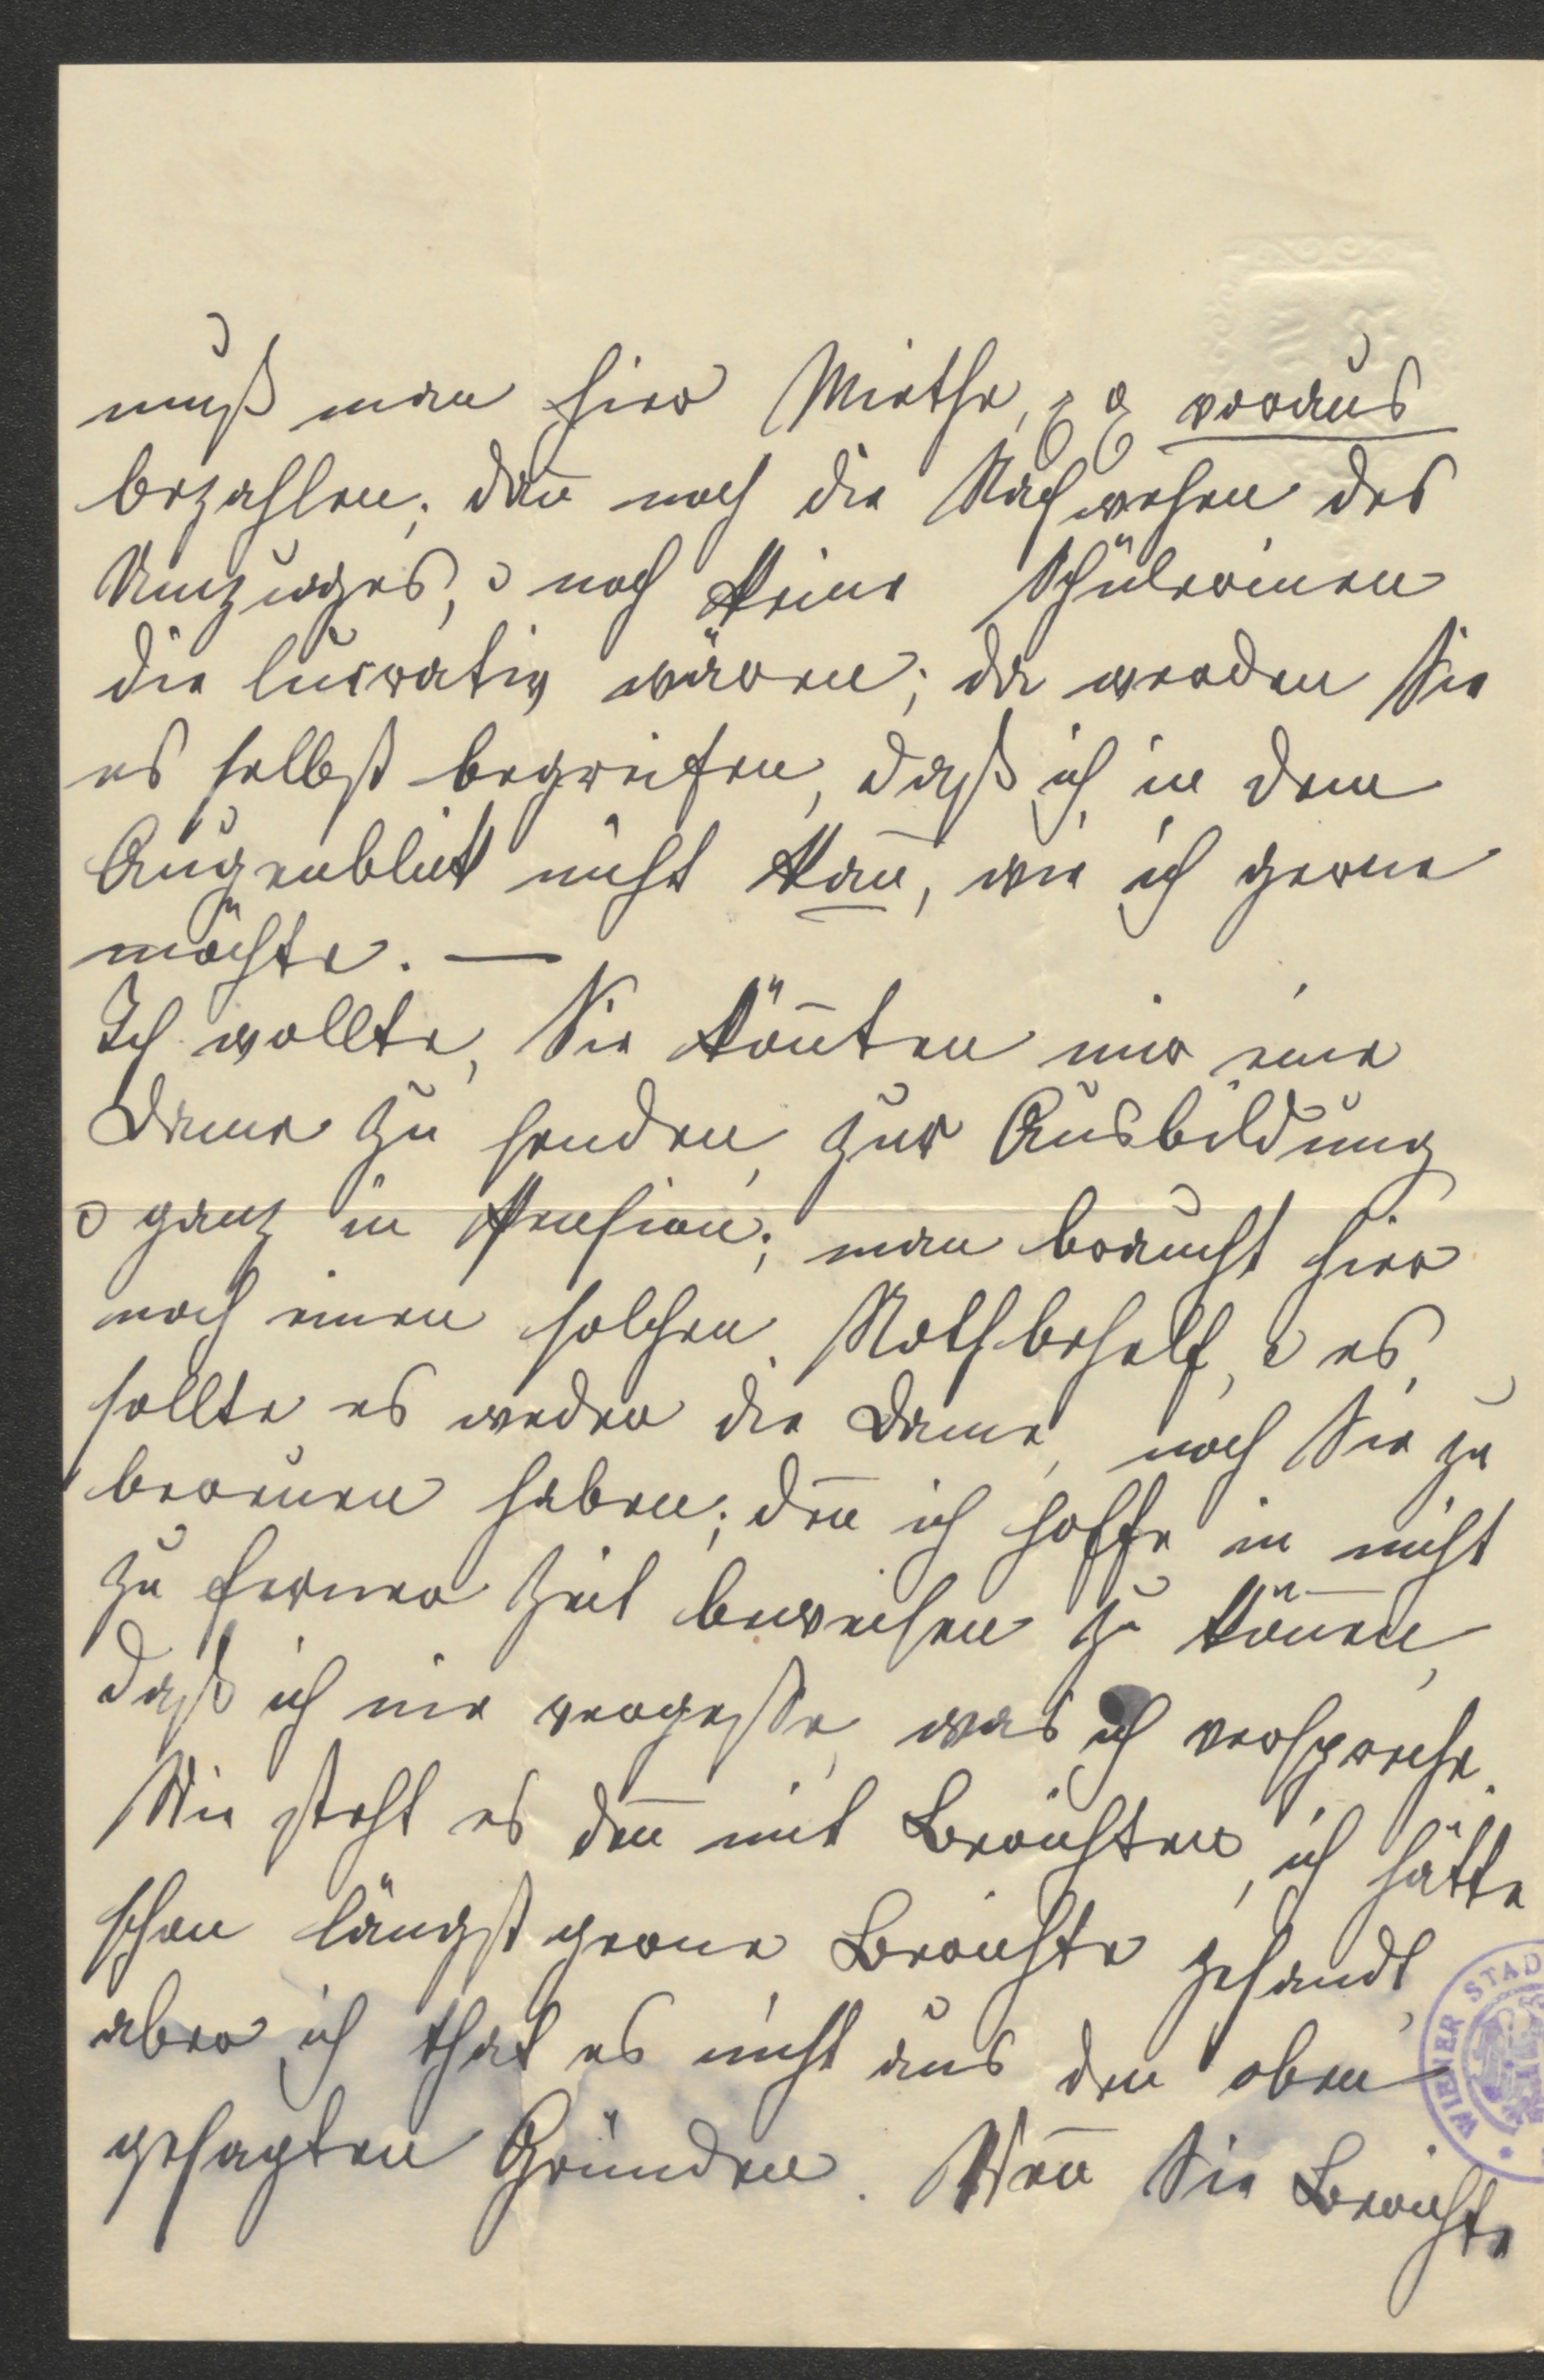 muß man hier Miethe, etc etc voraus
bezahlen; dan̄ noch die Nachwehen des
Umzuges, u noch keine Schülerinen
die lucrativ wären; da werden Sie
es selbst begreifen, daß ich in dem
Augenblick nicht kan̄, wie ich gerne
möchte. —
Ich wollte, Sie kön̄ten mir eine
Dame zu senden, zur Ausbildung
u ganz in Pension; man braucht hier
noch einen solchen Nothbehelf, u es
sollte es weder die Dame, noch Sie zu
bereuen haben; den̄ ich hoffe in nicht
zu ferner Zeit beweisen zu kön̄en,
daß ich nie vergeße, was ich verspreche.
Wie steht es den̄ mit Berichten, ich hätte
schon längst gerne Berichte gesandt,
aber ich that es nicht aus den oben
gesagten Gründen. Wen̄ Sie Berichte
WIENER STAD